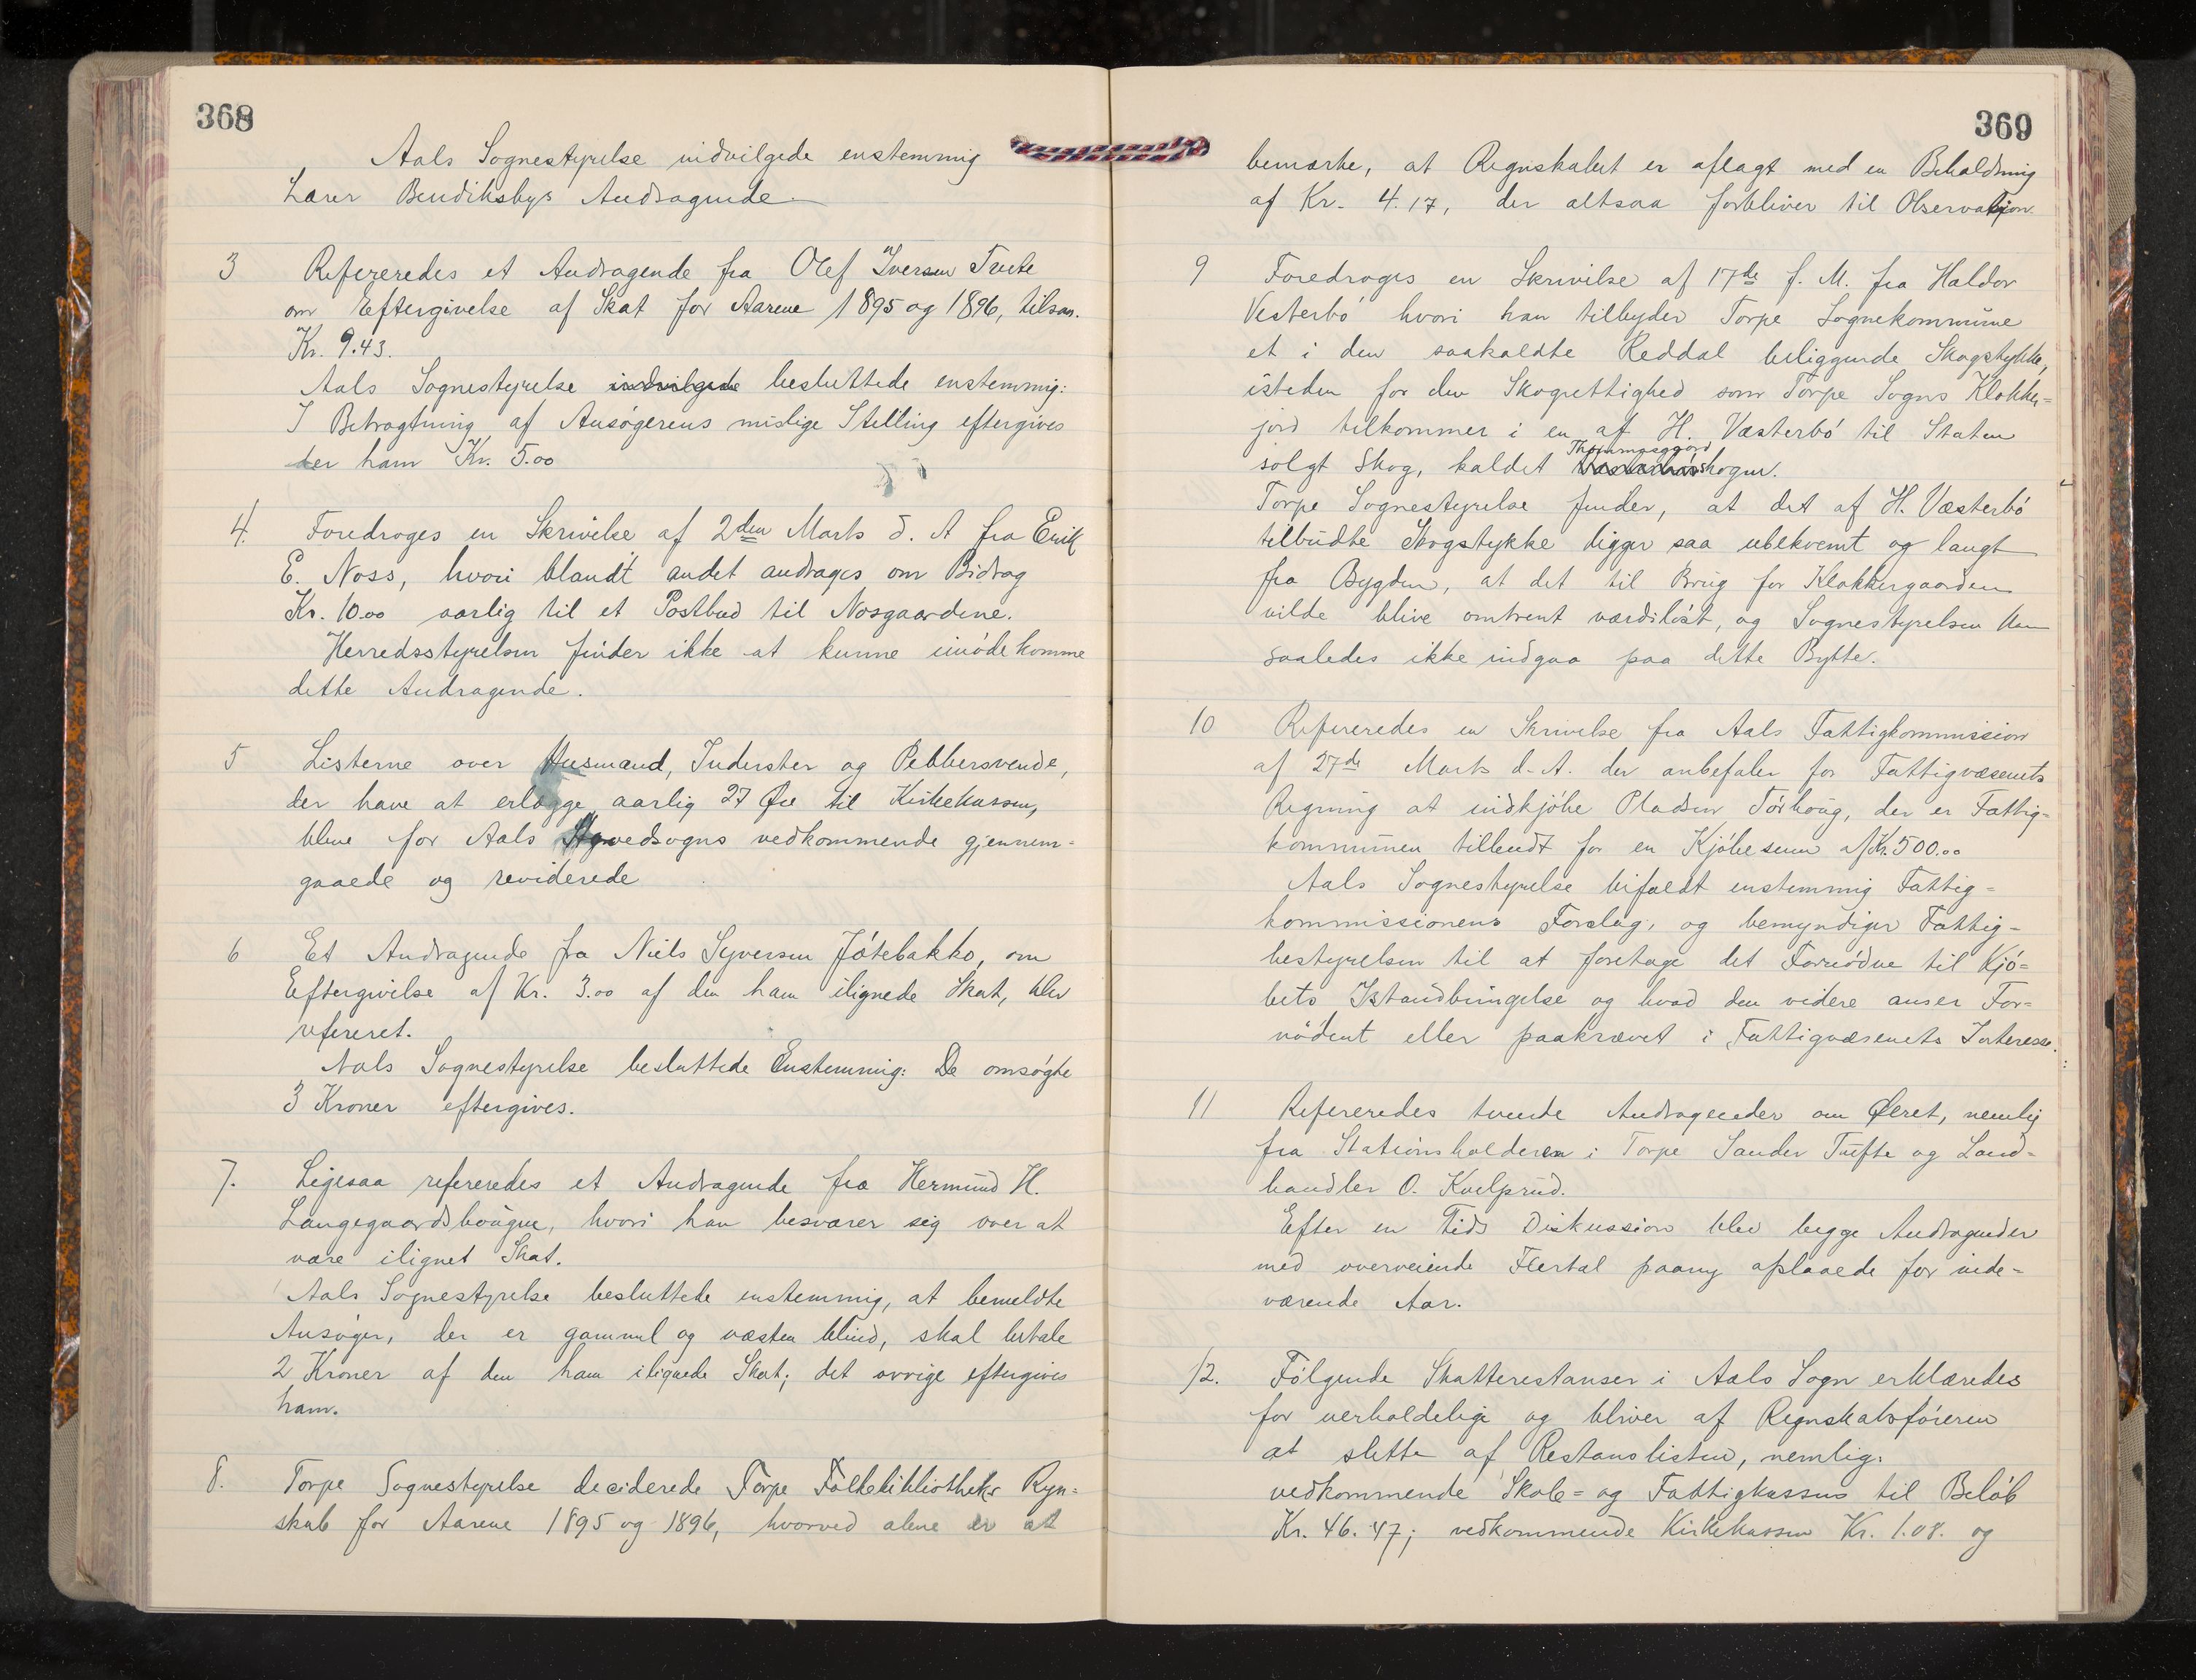 368
Aals Sognestyrelse indvilgede enstemmig
Lærer Bendiksbys Andragende
3 Refereredes et Andragende fra Olef Iversen Tveite
om Eftergivelse af Skat for Aarene 1895 og 1896, tilsam.
Kr. 9.43.
Aals Sognestyrelse indvilgede besluttede enstemmig:
I Betragtning af Ansøgerens mislige Stilling eftergives
der ham Kr. 5.00
4. Foredroges en Skrivelse af 2den Marts d. A fra Erik
E. Noss, hvori blandt andet andrages om Bidrag
Kr. 10.00 aarlig til et Postbud til Nosgaardene.
Herredsstyrelsen finder ikke at kunne imødekomme
dette Andragende.
5 Listerne over Husmænd, Inderster og Pebbersvende,
der have at erlægge aarlig 27 Øre til Kirkekassen,
bleve for Aals Hovedsogns vedkommende gjennem-
gaaede og reviderede
6 Et Andragende fra Niels Syversen Jótebakko, om
Eftergivelse af Kr. 3.00 af den ham ilignede Skat, blev
refereret.
Aals Sognestyrelse besluttede Enstemmig: De omsøgte
3 Kroner eftergives.
7. Ligesaa refereredes et Andragende fra Hermund H.
Langegaardshougen, hvori han besværer sig over at
være ilignet Skat.
Aals Sognestyrelse besluttede enstemmig, at bemeldte
Ansøger, der er gammel og næsten blind, skal betale
2 Kroner af den ham ilignede Skat; det øvrige eftergives
ham.
8. Torpe Sognestyrelse deciderede Torpe Folkebibliotheks Regn-
skab for Aarene 1895 og 1896, hvorved alene er at
369
bemærke, at Regnskabet er aflagt med en Beholdning
af Kr. 4.17, der altsaa forbliver til Observation.
9 Foredroges en Skrivelse af 17de f. M. fra Haldor
Vesterbó hvori han tilbyder Torpe Sognekommune
et i den saakaldte Reddal beliggende Skogstykke,
isteden for den Skogrettighed som Torpe Sogns Klokker-
jord tilkommer i en af H. Væsterbó til Staten
Thoimmasgaard
solgt Skog, kaldet skogen.
Torpe Sognestyrelse finder, at det af H. Væsterbó
tilbudte Skogstykke ligger saa ubekvemt og langt
fra Bygden, at det til Brug for Klokkergaarden
vilde blive omtrent værdiløst, og Sognestyrelsen kan
saaledes ikke indgaa paa dette Bytte.
10 Refereredes en Skrivelse fra Aals Fattigkommission
af 27de Marts d. A. der anbefaler for Fattigvæsenets
Regning at indkjóbe Pladsen Tórhoug, der er Fattig-
kommunen tilbudt for en Kjóbesum af Kr. 500.00
Aals Sognestyrelse bifaldt enstemmig Fattig-
kommissionens Forslag, og bemyndiger Fattig-
bestyrelsen til at foretage det Fornódne til Kjó-
bets Istandbringelse og hvad den videre anser For-
nódent eller paakrævet i Fattigvæsenets Interesse.
11 Refereredes tvende Andragender om Ølret, nemlig
fra Stationsholderen i Torpe Sander Tufte og Land-
handler O. Kvelprud.
Efter en Tids Diskussion blev begge Andragender
med overveiende Flertal paany afslaaede for inde-
værende Aar.
12. Fólgende Skatterestanser i Aals Sogn erklæredes
for uerholdelige og bliver af Regnskabsfóreren
at slette af Restanslisten, nemlig:
vedkommende Skole- og Fattigkassens til Belób
Kr. 46.47; vedkommende Kirkekassen Kr. 1.08. og